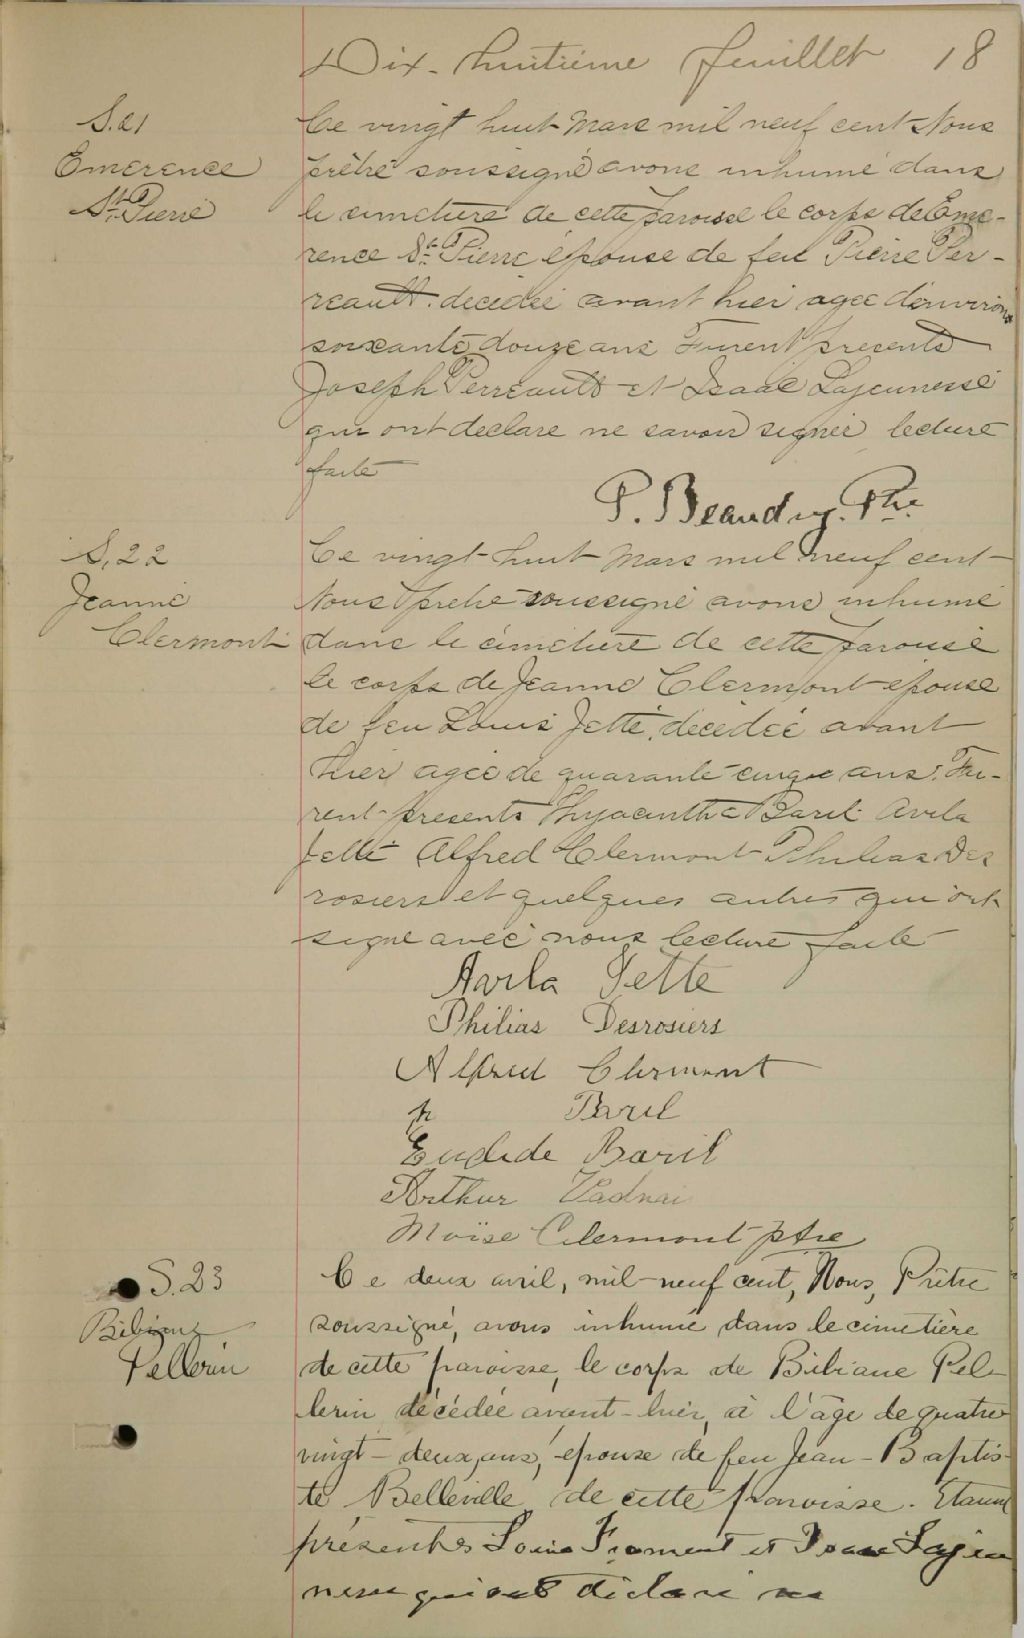 Dix-huitième feuillet 18
S.21
Emerence
St. Pierre
Ce vingt huit Mars mil neuf cent Nous
prêtre soussigné avons inhumé dans
le cimetière de cette paroisse le corps de Eme-
rence St. Pierre épouse de feu Pierre Per-
reault decédée avant hier agée d'environ
soixante douze ans Furent presents
Joseph Perreault et Isaac Lajeunesse
qui ont declare ne savoir signer lecture
faite
P. Beaudry. Ptre.
S.22
Jeanne
Clermont
Ce vingt huit Mars mil neuf cent
Nous prêtre soussigné avons inhumé
dans le cimetière de cette paroisse
le corps de Jeanne Clermont epouse
de feu Louis Jetté, décédée avant
hier agée de quarante cinq ans. Fu-
rent presents Hyacinthe Baril Avila
Jetté Alfred Clermont Philias Des
rosiers et quelques autres qui ont
signé avec nous lecture faite
Avila Jette
Philias Desrosiers
Alfred Clermont
h Baril
Euclide Baril
Arthur Vadnai
Moïse Clermont ptre
S.23
Bibiane
Pellerin
Ce deux avril, mil-neuf cent, Nous, Prêtre
soussigné, avons inhumé dans le cimetière
de cette paroisse, le corps de Bibiane Pel-
lerin décédée avant-hier, à l'âge de quatre
vingt-deux, ans, épouse de feu Jean-Baptis-
te Belleville de cette paroisse. Etaient
présents Louis Froment et Isaac Lajeu
nesse qui ont déclaré ne